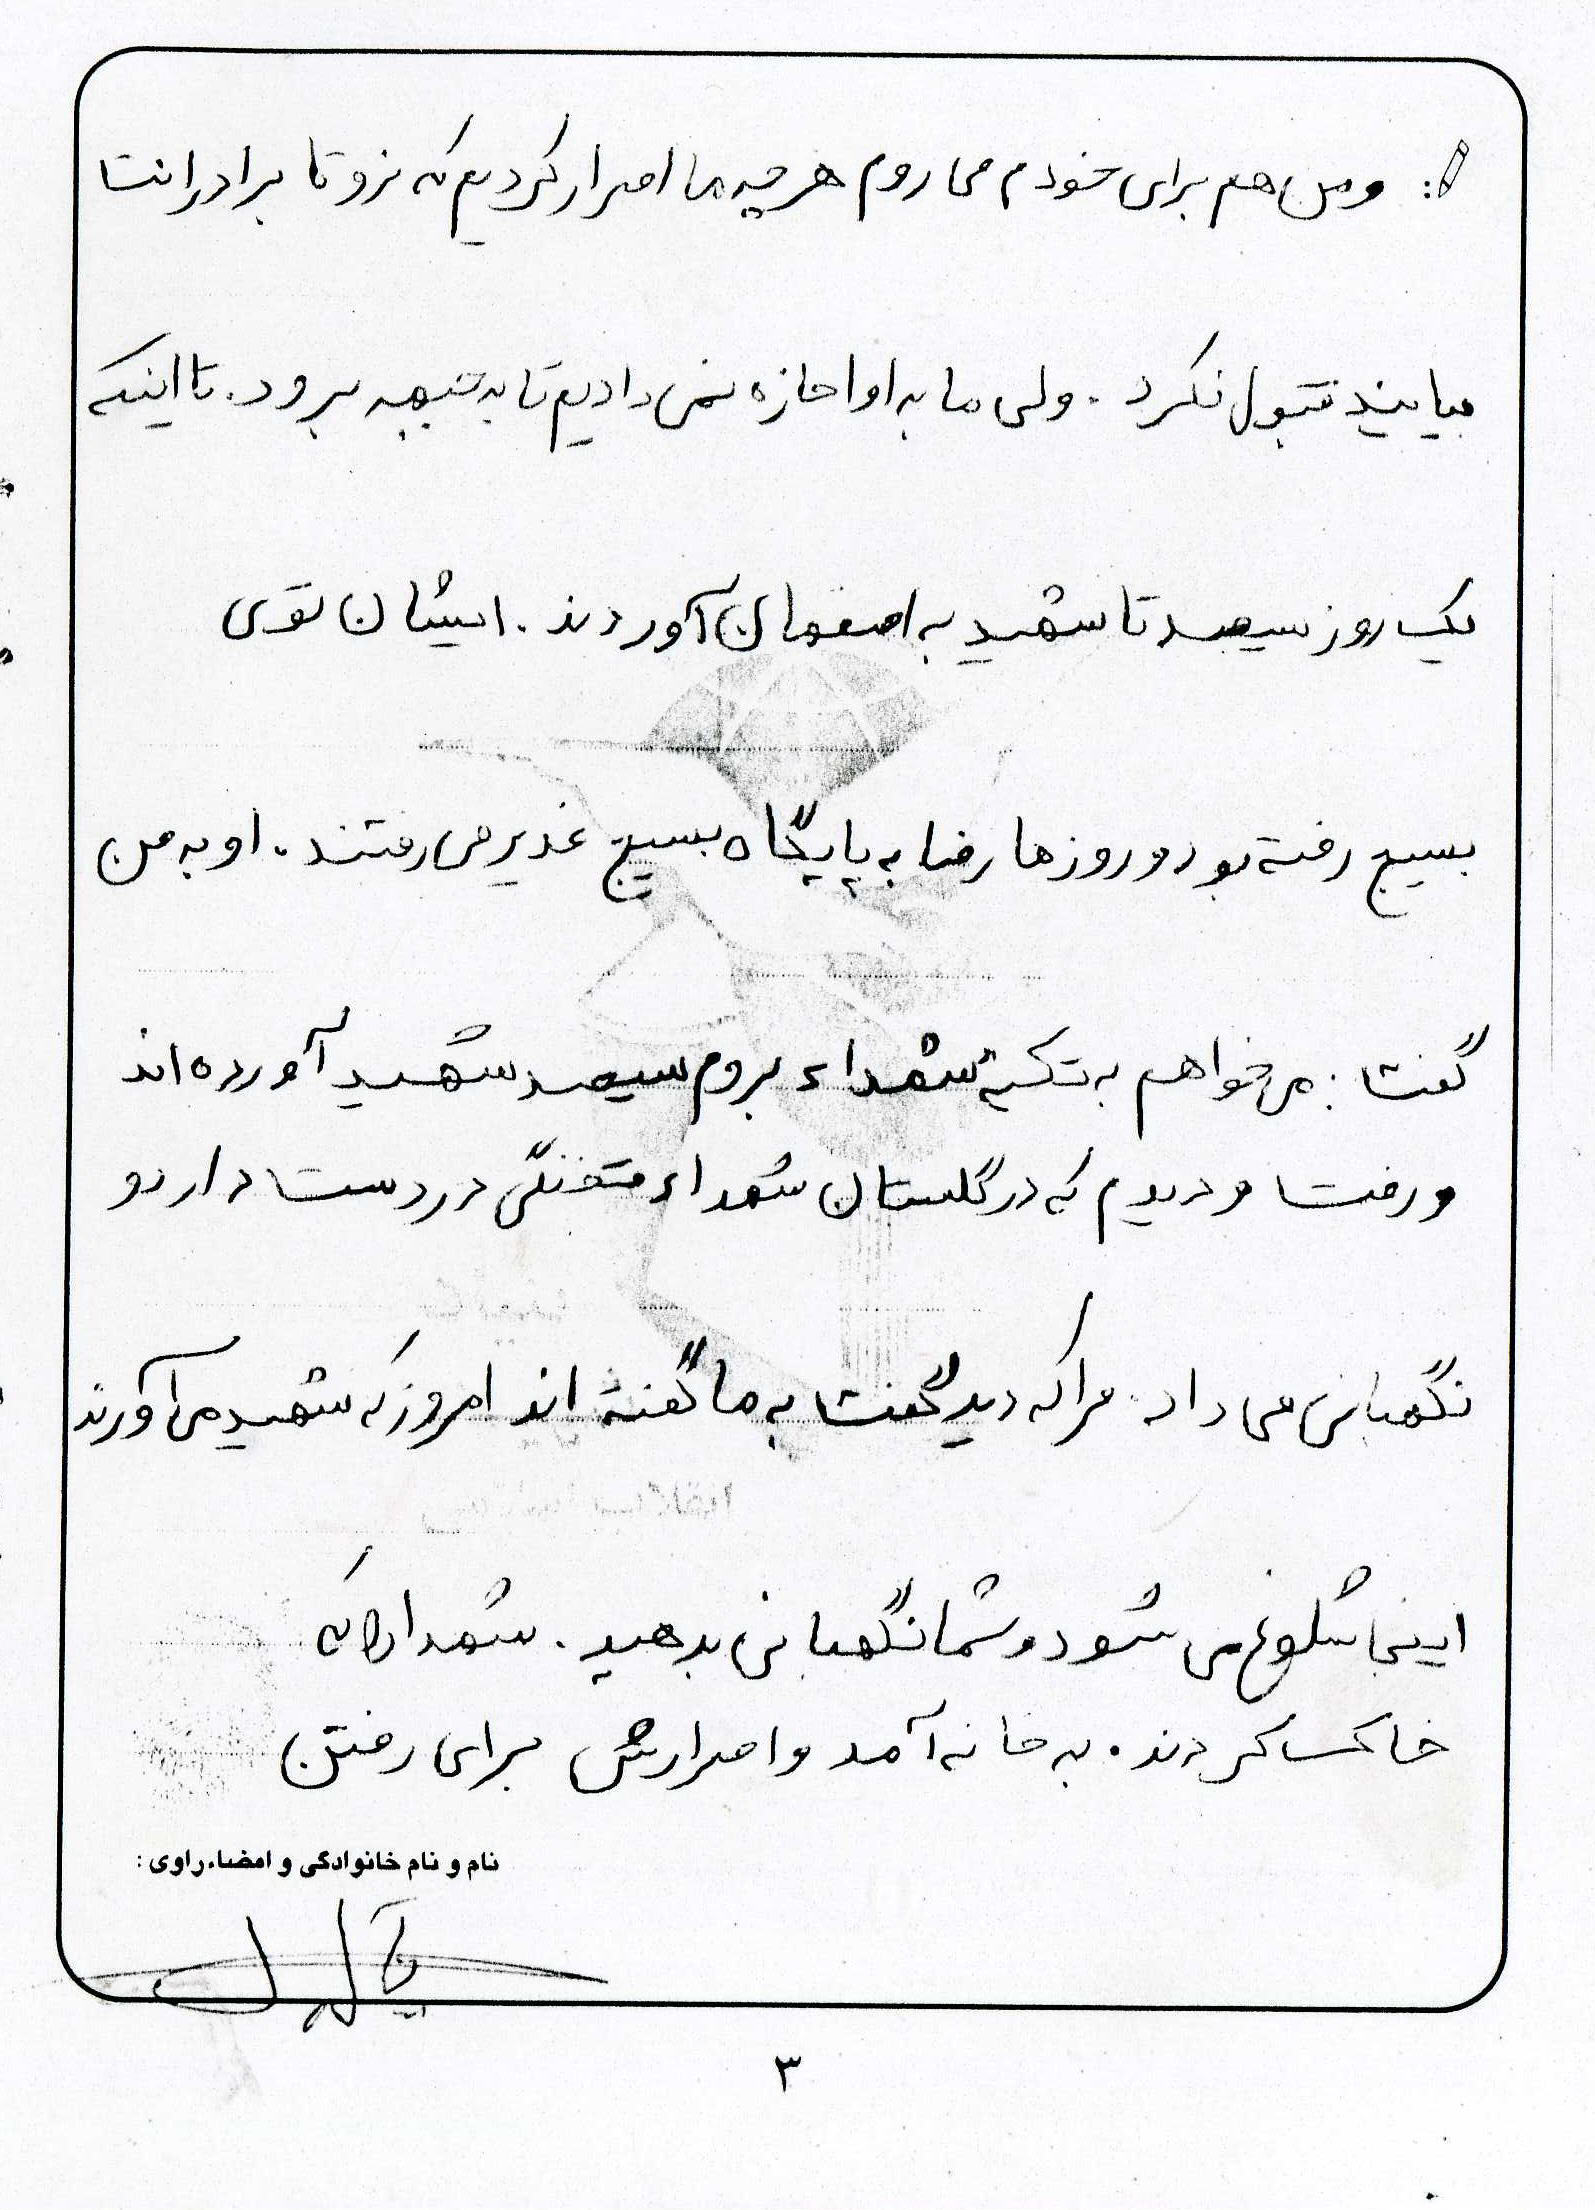 : ومن هم برای خودم می روم هر چه ما اصرار کردیم که نرو تا برادرانت
بیایند قبول نکرد . ولی ما به او اجازه نمی دادیم تا به جبهه برود . تا اینکه
یک روز سیصد تا شهید به اصفهان آوردند . ایشان توی
بسیج رفته بود و روزها رضا به پایگاه بسیج غدیر می رفتند . او به من
گفت : می خواهم به تکیه شهداء بروم سیصد شهید آورده اند
و رفت و دیدم که در گلستان شهداء تفنگی در دست دارد و
نگهبانی می داد . مرا که دید گفت به ما گفته اند امروز که شهید می آورند
اینجا شلوغ می شود و شما نگهبانی بدهید . شهدا را که
خاک کردند . به خانه آمد و اصرارش برای رفتن
نام و نام خانوادگی و امضاء راوی :
۳